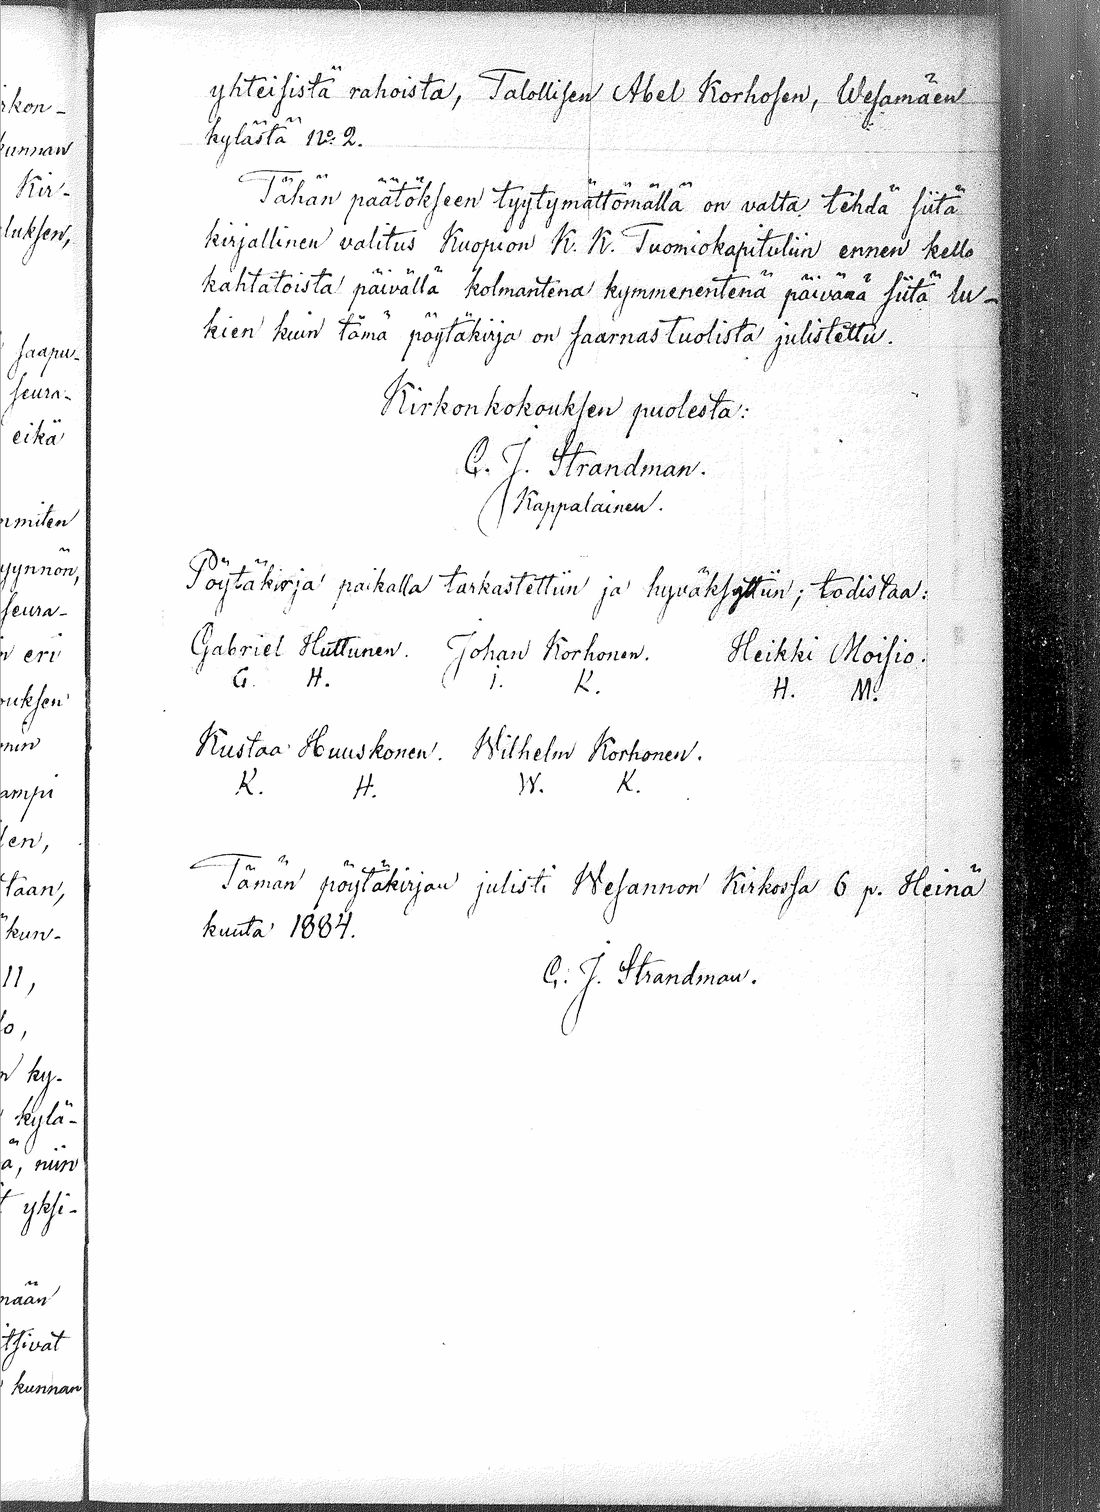 yhteisistä rahoista, Talollisen Abel Korhosen, Wesamäen
kylästä No 2.
Tähän päätökseen tyytymättömällä on valta tehdä siitä
kirjallinen valitus Kuopion K. K. Tuomiokapituliin ennen kello
kahtatoista päivällä kolmantena kymmenentenä päivänä siitä lu-
kien kuin tämä pöytäkirja on saarnastuolista julistettu.
Kirkonkokouksen puolesta:
C. J. Strandman.
Kappalainen.
Pöytäkirja paikalla tarkastettiin ja hyväksyttiin; todistaa:
Gabriel Huttunen. Johan Korhonen. Heikki Moisio.
G. H. I. K. H. M.
Kustaa Huuskonen. Wilhelm Korhonen.
K. H. W. K.
Tämän pöytäkirjan julisti Wesannon Kirkossa 6 p. Heinä
kuuta 1884.
C. J. Strandman.
rkon-
kunnan
Kir-
luksen,
saapu-
seura-
eikä
nmiten
yynnön,
seura-
n eri
ouksen
ampi
len,
tään,
kun-
11,
lo,
n ky-
kylä-
ä, niin
t yksi-
nään
itsivat
kunnan